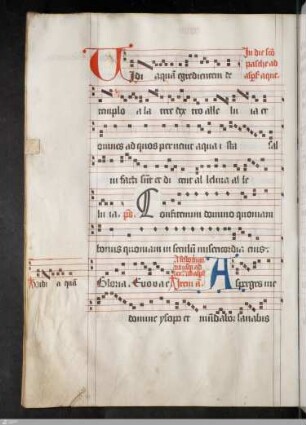 In die scō
pasche ad
asps̄ aque
Uidi aquā egredientem de
templo a la tere dex tro alle lu ia et
omnes ad quos per uenit aqua i sta sal
ui facti sūt et di cent al leluia al le
lu ia. ps̄. Confitemini domino quoniam
bonus quoniam in seculū misericordia eius.
Uidi a quā
Gloria. Euouae Asperges me
domine ysopo et mūdabor lauabis